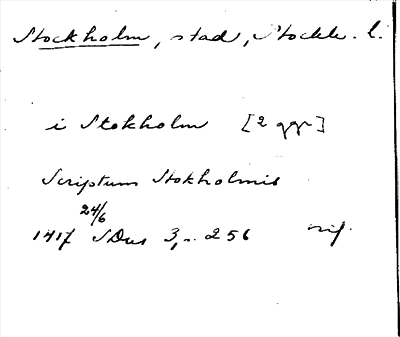 Stockholm, stad, Stockh. l.
i Stokholm [2 ggr]
Scriptum Stokholmis
24/6
1417 SDns 3, s. 256 orig.